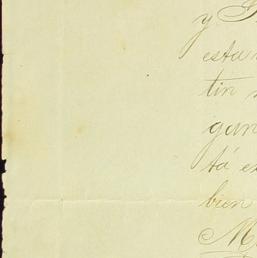 y
esta
tin
gan
tá
bien
M